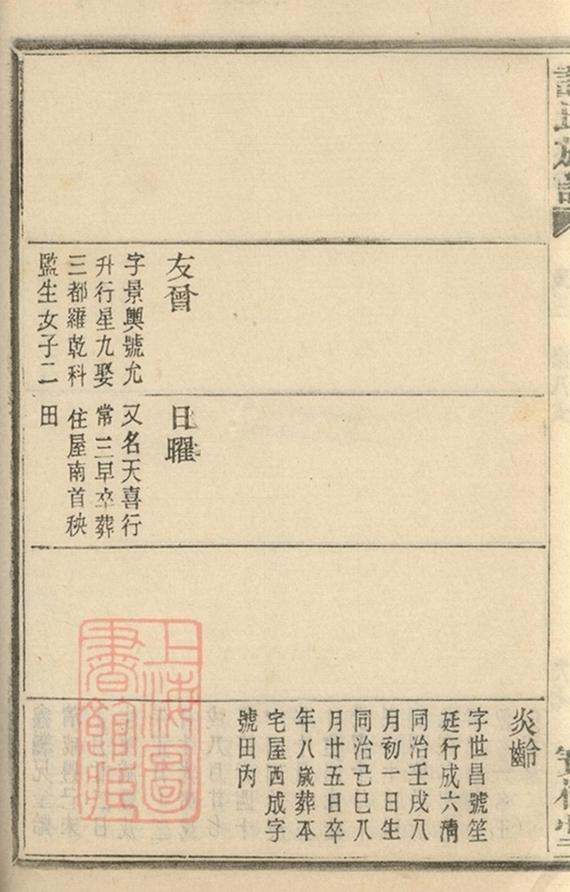 友曾
字景輿號允
升行星九娶
三都羅乾科
監生女子二
日曜
又名天喜行
常三早卒葬
住屋南首秧
田
炎齡
字世昌號笙
廷行成六清
同治壬戌八
月初一日生
同治己巳八
月廿五日卒
年八歲葬本
宅屋西成字
號田內
上海圖
書館藏